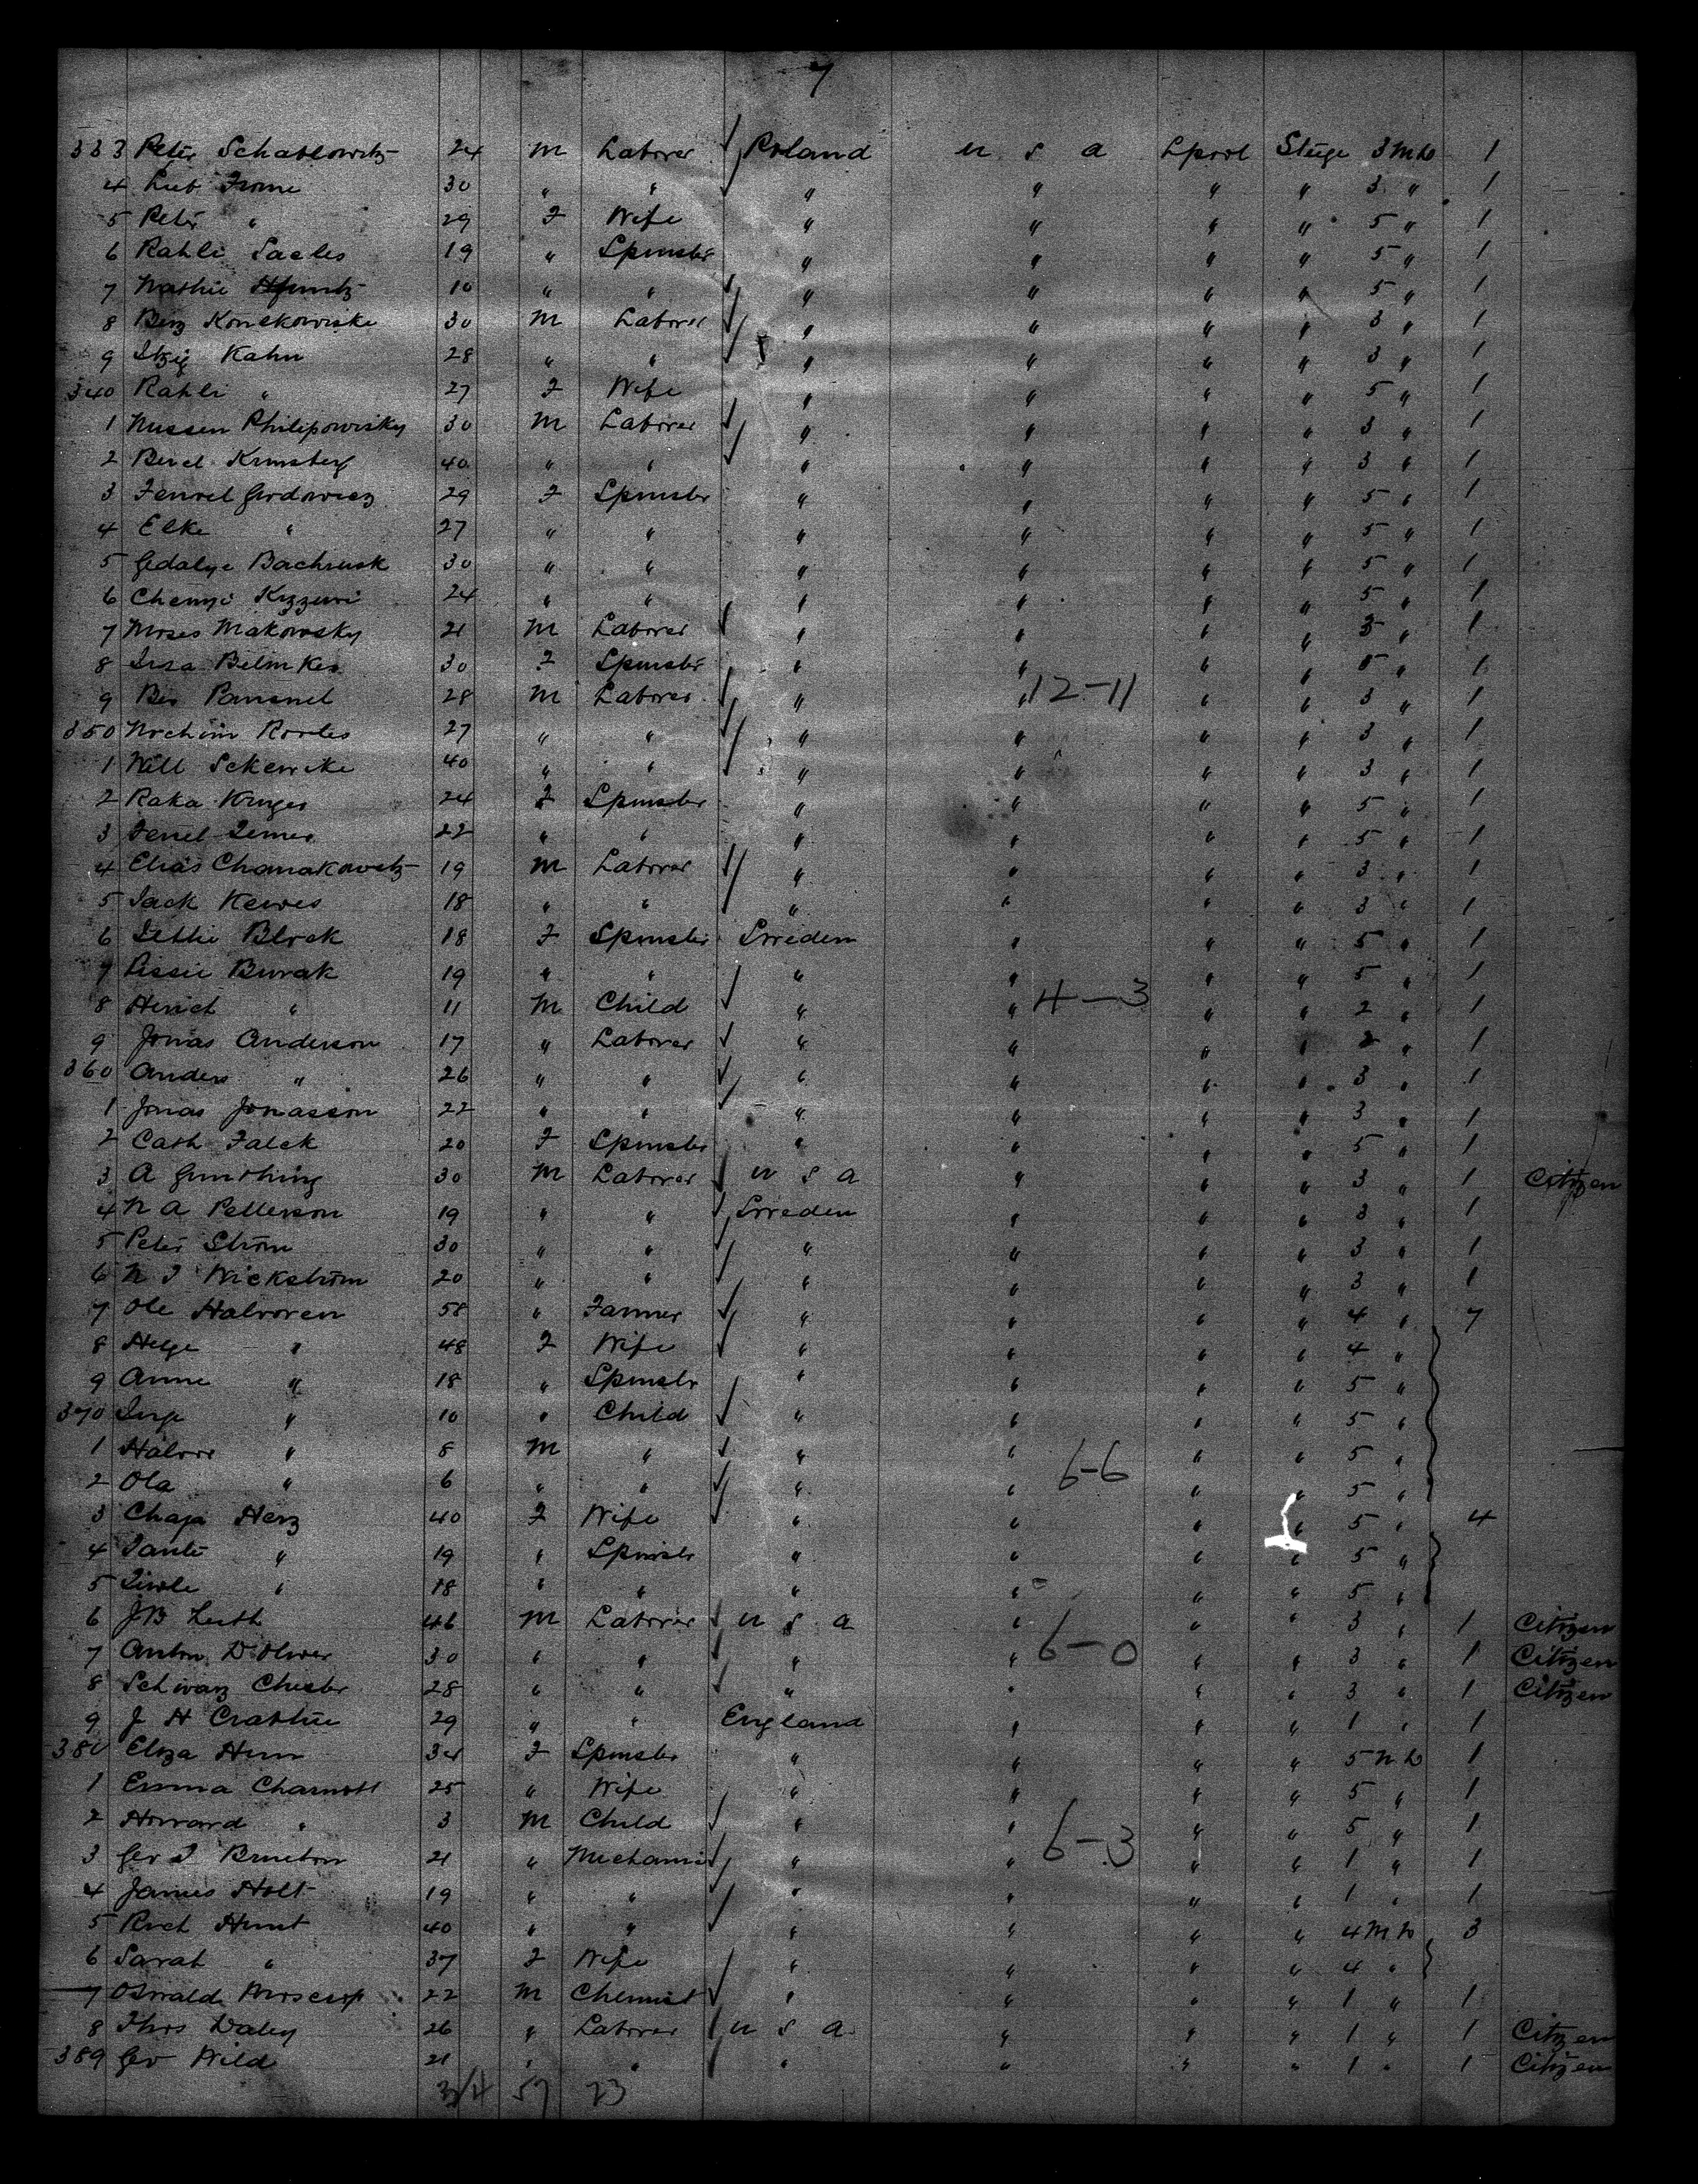 7
333 Peter Schablowitz 24 m Laborer Poland u s a Lpool Stege 3 m ho 1
4 Leib Frome 30 " " " " " " 3 " 1
5 Peter " 29 F Wife " " " " 5 " 1
6 Rahli Sacles 19 " Spinster " " " " 5 " 1
7 Nathie 10 " " " " " " 5 " 1
8 Berz Konckowiske 30 m Laborer " " " " 3 " 1
9 Itzig Kahn 28 " " " " " " 3 " 1
340 Rahli " 27 F Wife " " " " 5 " 1
1 Nussen Philipowisky 30 m Laborer " " " " 3 " 1
2 Berel Krinsberg 40 " " " " " " 3 " 1
3 Fenrel Gordowicz 29 F Spinster " " " " 5 " 1
4 Elke " 27 " " " " " " 5 " 1
5 Gedalye Bachrusk 30 " " " " " " 5 " 1
6 Chemji Kizzuri 24 " " " " " " 5 " 1
7 Moses Makowsky 21 m Laborer " " " " 3 " 1
8 Issa Belinkes 30 F Spinster " " " " 5 " 1
9 Ber 28 m Laborer " " 12-11 " " 3 " 1
350 Nochim Rootes 27 " " " " " " 3 " 1
1 Nell Sckewike 40 " " " " " " 3 " 1
2 Raka Kruger 24 F Spinster " " " " 5 " 1
3 Fenel Zemes 22 " " " " " " 5 " 1
4 Elias Chanakowetz 19 m Laborer " " " " 3 " 1
5 Jack Kewes 18 " " " " " " 3 " 1
6 Settie Block 18 F Spinster Sweden " " " 5 " 1
7 Lissie Burak 19 " " " " " " 5 " 1
8 Hirich " 11 m Child " " 4-3 " " 2 " 1
9 Jonas Anderson 17 " Laborer " " " " 2 " 1
360 Anders " 26 " " " " " " 3 " 1
1 Jonas Jonasson 22 " " " " " " 3 " 1
2 Cath Falck 20 F Spinster " " " " 5 " 1
3 A Gunthing 30 m Laborer u s a " " " 3 " 1 Citizen
4 N A Petterson 19 " " Sweden " " " 3 " 1
5 Peter Strom 30 " " " " " " 3 " 1
6 N J Wickstrom 20 " " " " " " 3 " 1
7 Ole Halvoren 58 " Farmer " " " " 4 " 7
8 Helge " 48 F Wife " " " " 4 "
9 Anne " 18 " Spinster " " " " 5 "
370 Inge " 10 " Child " " " " 5 "
1 Halvor " 8 m " " " " " 5 "
2 Ola " 6 " " " " 6-6 " " 5 "
3 Chaja Herz 40 F Wife " " " " 5 " 4
4 Tante " 19 " Spinster " " " " 5 "
5 Ziwle " 18 " " " " " " 5 "
6 J B Leith 46 m Laborer u s a " " " 3 " 1 Citizen
7 Anton D Oliver 30 " " " " 6-0 " " 3 " 1 Citizen
8 Schwarz Chester 28 " " " " " " 3 " 1 Citizen
9 J H Crabtree 29 " " England " " " 1 " 1
380 Eliza Hum 34 F Spinster " " " " 5 m ho 1
1 Emma Charnott 25 " Wife " " " " 5 " 1
2 Howard " 3 m Child " " " " 5 " 1
3 Geo J Brueton 21 " Mechanic " " 6-3 " " 1 " 1
4 James Holt 19 " " " " " " 1 " 1
5 Rich Hunt 40 " " " " " " 4 m ho 3
6 Sarah " 37 F Wife " " " " 4 "
7 Oswald Moscrop 22 m Chemist " " " " 1 " 1
8 Thos Daley 26 " Laborer u s a " " " 1 " 1 Citizen
389 Geo Wild 21 " " " " " " 1 " 1 Citizen
34 57 23